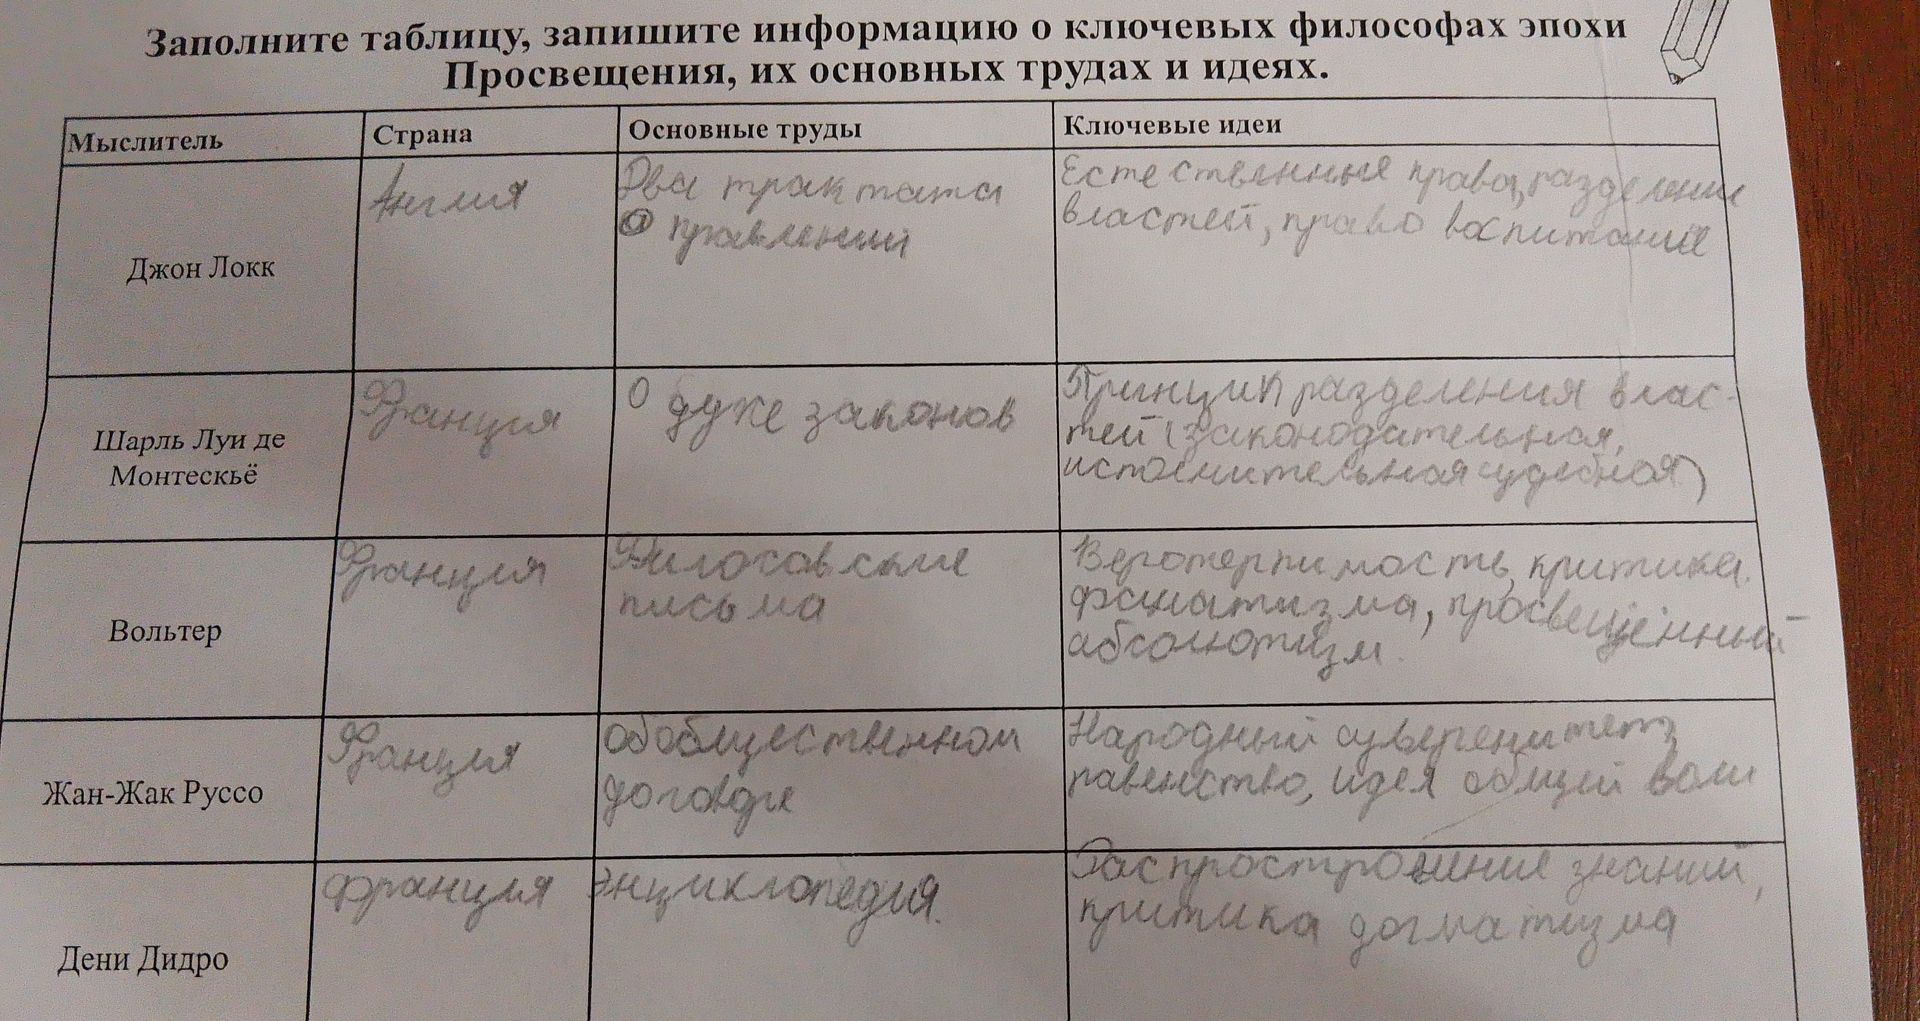 Заполните таблицу, запишите информацию о ключевых философах эпохи
Просвещения, их основных трудах и идеях.
Мыслитель
Страна
Основные труды
Ключевые идеи
Джон Локк
Англия
Два трактата
о правлении
Естественные права, разделение
властей, право воспитание
Шарль Луи де
Монтескьё
Франция
О духе законов
Принцип разделения влас-
тей (законодательная,
исполнительная судебная)
Вольтер
Франция
Философские
письма
Веротерпимость, критика
фанатизма, просвещённый
абсолютизм.
Жан-Жак Руссо
Франция
Об общественном
договоре
Народный суверенитет,
равенство, идея общей воли
Дени Дидро
Франция
Энциклопедия.
Распространение знаний,
критика догматизма